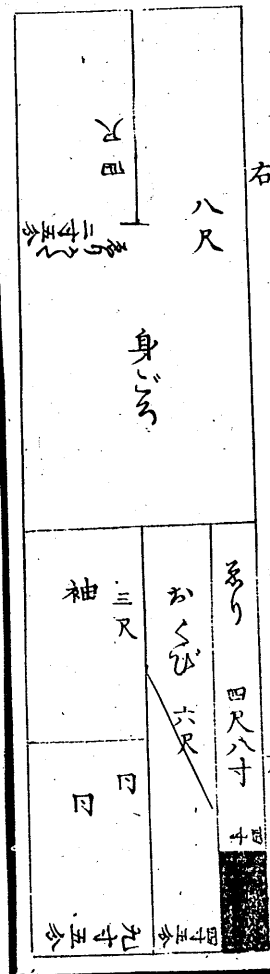 右
八尺
四尺
二寸五分
身ごろ
ゑり 四尺八寸
四寸
おくび 六尺
四寸五分
三尺
袖
同
同
九寸五分